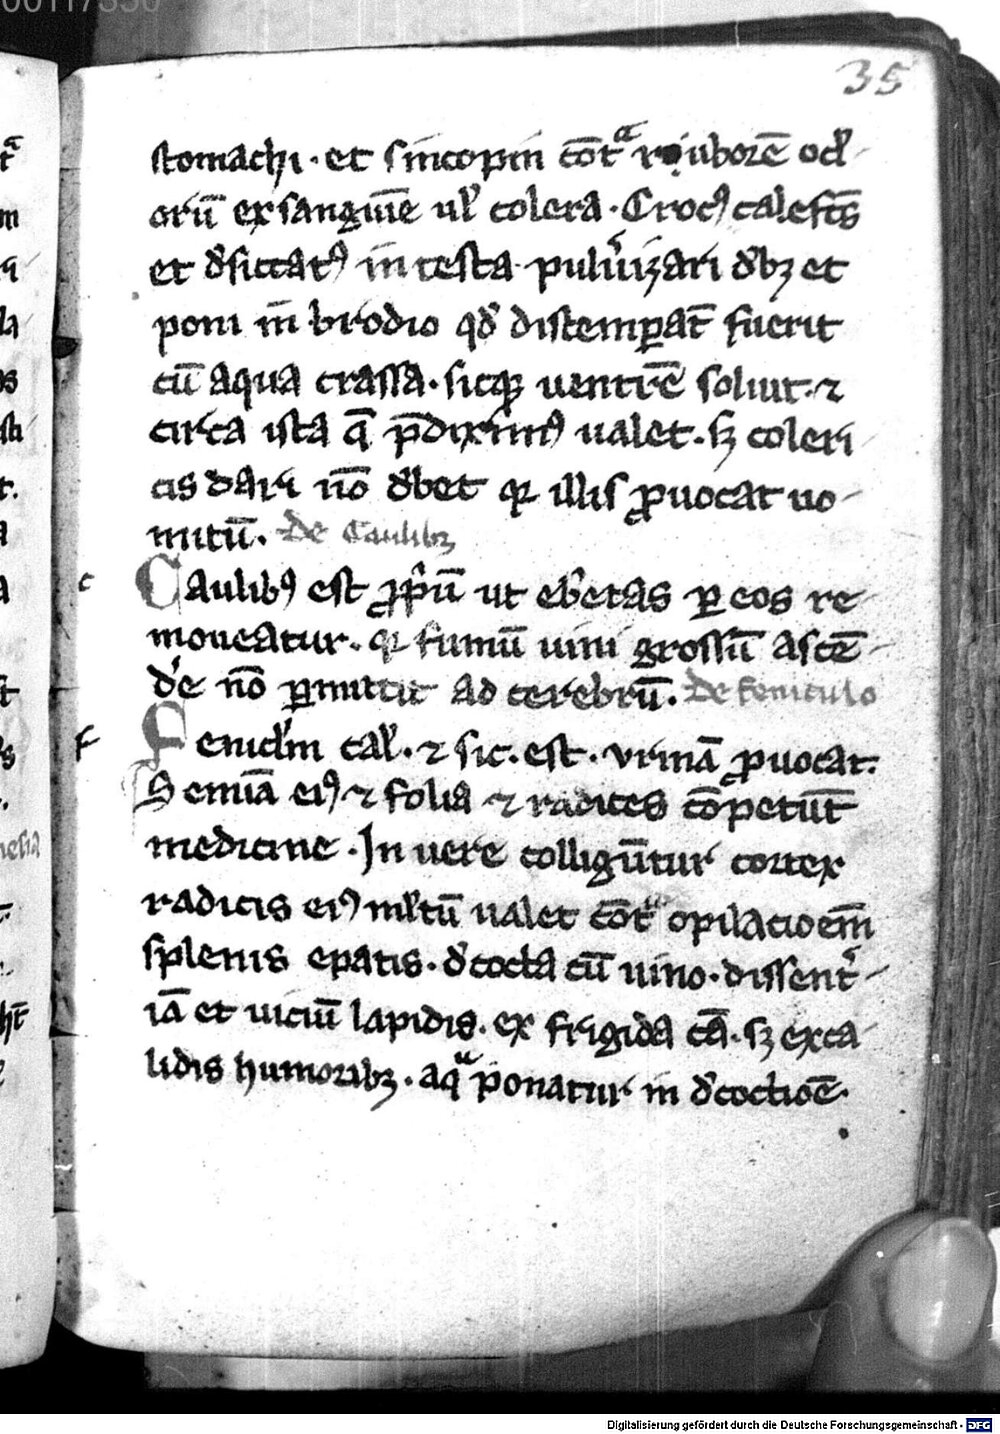 35
stomachi · et sincopin cōtᵃ ruborē ocł
orū ex sanguīe ul' colera · Crocꝰ calefcꝰ
et d'siccatꝰ in testa pulu'izari d'bꝫ et
poni in brodio qd' distemꝑat̄ fuerit
cū aqua crassa · sicqꝫ uentrē soluit · ⁊
circa ista q̄ p̄diximꝰ ualet · sꝫ coleri
cis dari nō d'bet qꝛ illis ꝓuocat uo
mitū · De Caulibꝫ
c Caulibꝰ est ꝓpiū ut eb'etas ꝑ eos re
moueatur · qꝛ fumū uini grossū ascē
d'e nō ꝑmittit ad cerebrū · De feniculo
f Fenicl'm cal' · ⁊ sic · est · vrinā ꝓuocat ·
Semīa eiꝰ ⁊ folia ⁊ radices cōpetūt
medicine · In uere colligūtur cortex
radicis eiꝰ ml'tū ualet cōtᵃ opilacioēm
splenis epatis · d'cocta cū uino · dissent'
iā et uiciū lapidis · ex frigida cā · sꝫ ex ca
lidis humoribꝫ · aqᵃ ponatur in d'coctiōe ·
Digitalisierung gefördert durch die Deutsche Forschungsgemeinschaft - DFG